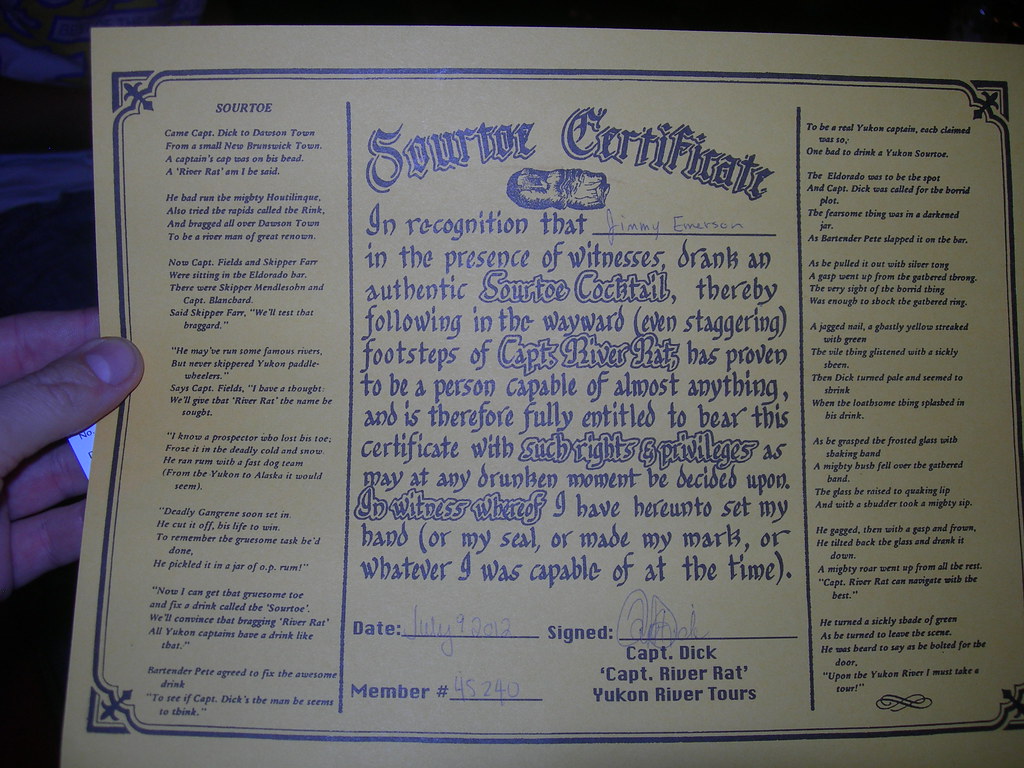 SOURTOE
Came Capt. Dick to Dawson Town
From a small New Brunswick Town.
A captain's cap was on his head.
A 'River Rat' am I he said.
He had run the mighty Hootilinque,
Also tried the rapids called the Rink,
And bragged all over Dawson Town
To be a river man of great renown.
Now Capt. Fields and Skipper Farr
Were sitting in the Eldorado bar.
There were Skipper Mendlesohn and
Capt. Blanchard.
Said Skipper Farr, "We'll test that
braggard."
"He may've run some famous rivers,
But never skippered Yukon paddle-
wheelers."
Says Capt. Fields, "I have a thought:
We'll give that 'River Rat' the name be
sought.
"I know a prospector who lost his toe;
Froze it in the deadly cold and snow.
He ran rum with a fast dog team
(From the Yukon to Alaska it would
seem).
"Deadly Gangrene soon set in.
He cut it off, his life to win.
To remember the gruesome task he'd
done,
He pickled it in a jar of o.p. rum!"
"Now I can get that gruesome toe
and fix a drink called the 'Sourtoe'.
We'll convince that bragging 'River Rat'
All Yukon captains have a drink like
that."
Bartender Pete agreed to fix the awesome
drink
"To see if Capt. Dick's the man he seems
to think."
Sourtoe Certificate
In recognition that Jimmy Emerson
in the presence of witnesses, drank an
authentic Sourtoe Cocktail, thereby
following in the wayward (even staggering)
footsteps of Capt. River Rat, has proven
to be a person capable of almost anything,
and is therefore fully entitled to bear this
certificate with such rights & privileges as
may at any drunken moment be decided upon.
In witness whereof I have hereunto set my
hand (or my seal, or made my mark, or
whatever I was capable of at the time).
Date: July 9 2012 Signed:
Capt. Dick
'Capt. River Rat'
Member # 45240 Yukon River Tours
To be a real Yukon captain, each claimed
was so,
One had to drink a Yukon Sourtoe.
The Eldorado was to be the spot
And Capt. Dick was called for the horrid
plot.
The fearsome thing was in a darkened
jar.
As Bartender Pete slapped it on the bar.
As he pulled it out with silver tong
A gasp went up from the gathered throng.
The very sight of the horrid thing
Was enough to shock the gathered ring.
A jagged nail, a ghastly yellow streaked
with green
The vile thing glistened with a sickly
sheen.
Then Dick turned pale and seemed to
shrink
When the loathsome thing splashed in
his drink.
As he grasped the frosted glass with
shaking hand
A mighty hush fell over the gathered
band.
The glass he raised to quaking lip
And with a shudder took a mighty sip.
He gagged, then with a gasp and frown,
He tilted back the glass and drank it
down.
A mighty roar went up from all the rest.
"Capt. River Rat can navigate with the
best."
He turned a sickly shade of green
As he turned to leave the scene.
He was heard to say as he bolted for the
door,
"Upon the Yukon River I must take a
tour!"
No.